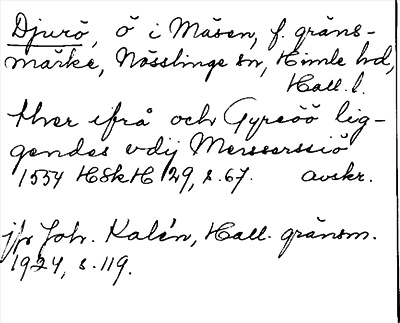 Djurö, ö i Mäsen, f. gräns-
märke, Nösslinge sn, Himle hd,
Hall. l.
Hver ifrå och Gyreöö lig-
gendes vdij Messerssiö
1554 HSkH 29, s. 67. avskr.
jfr Joh. Kalén, Hall. gränsm.
1924, s. 119.